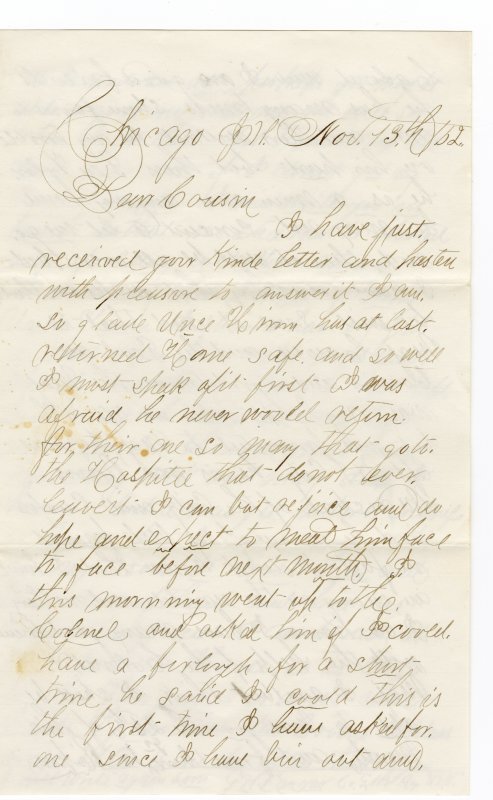 Chicago Ill. Nov. 13th /62.
Dear Cousin
I have just.
received your kinde letter and hasten
with pleasure to answer it I am.
So glade Unce Hirum has at last.
returned Home safe. and so well
I most speak of it first I was
afraid he never would return.
for their are so many that go to.
the Hospitle that do not ever.
leave it I can but rejoice and do
hope and expect to meat him face
to face before next month, I
this morning went up to the.
Colonel and asked him if I coved.
have a furlough for a short
time he said I coold this is
the first time I have asked for.
one since I have bin out and.